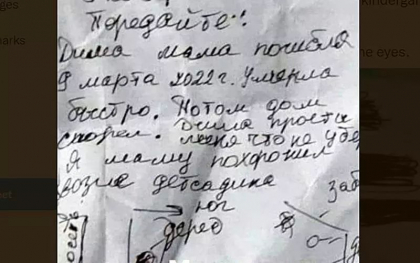 Передайте!
Дима мама погибла
9 марта 2022г. Умерла
быстро. Потом дом
сгорел. Дима прости
меня что не убе
Я маму похоронил
возле детсадика
юг
дерев
заб
he eyes.